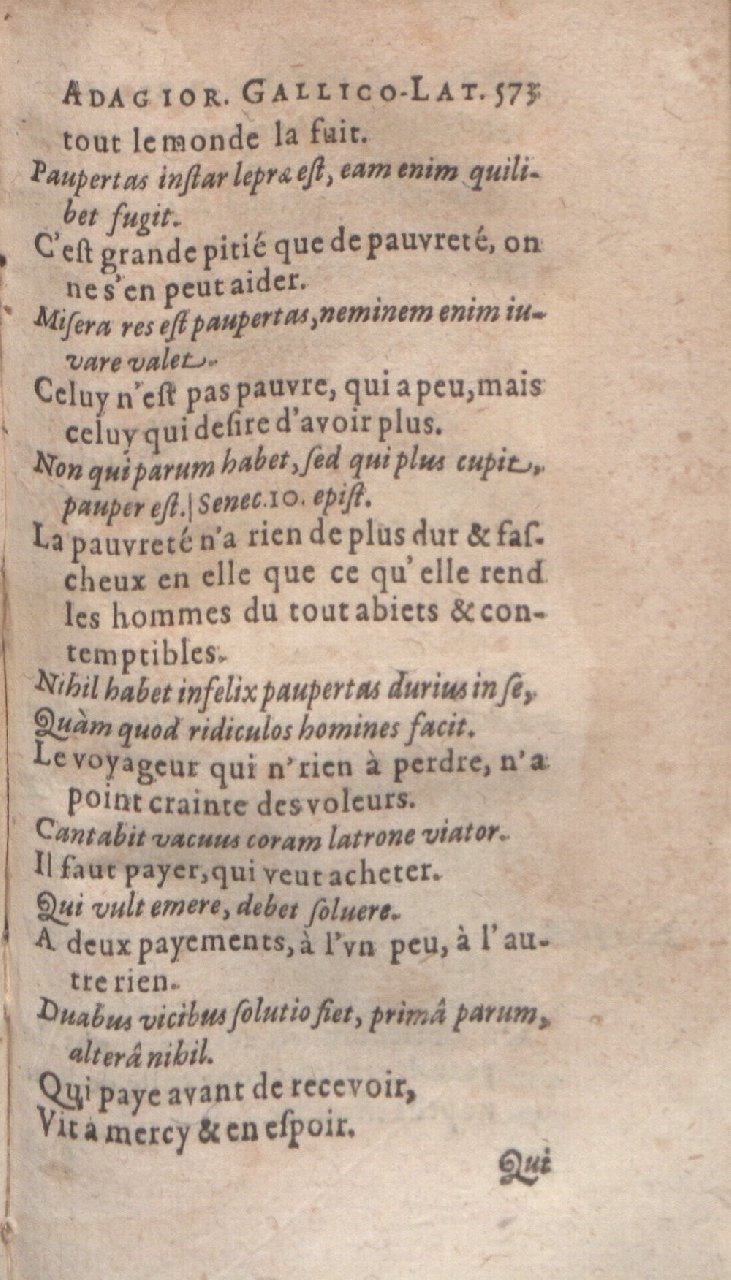 ADAGIOR. GALLICO-LAT. 573
tout le monde la fuit.
Paupertas inſtar lepræ eſt, eam enim quili-
bet fugit.
C'eſt grande pitié que de pauvreté, on
ne s'en peut aider.
Miſera res eſt paupertas, neminem enim iu-
vare valet.
Celuy n'eſt pas pauvre, qui a peu, mais
celuy qui deſire d'avoir plus.
Non qui parum habet, ſed qui plus cupit,
pauper eſt. | Senec. 10. epiſt.
La pauvreté n'a rien de plus dur & faſ-
cheux en elle que ce qu'elle rend
les hommes du tout abiets & con-
temptibles.
Nihil habet infelix paupertas durius in ſe,
Quàm quod ridiculos homines facit.
Le voyageur qui n'rien à perdre, n'a
point crainte des voleurs.
Cantabit vacuus coram latrone viator.
Il faut payer, qui veut acheter.
Qui vult emere, debet ſoluere.
A deux payements, à l'vn peu, à l'au-
tre rien.
Duabus vicibus ſolutio fiet, primâ parum,
alterâ nihil.
Qui paye avant de recevoir,
Vit à mercy & en eſpoir.
Qui